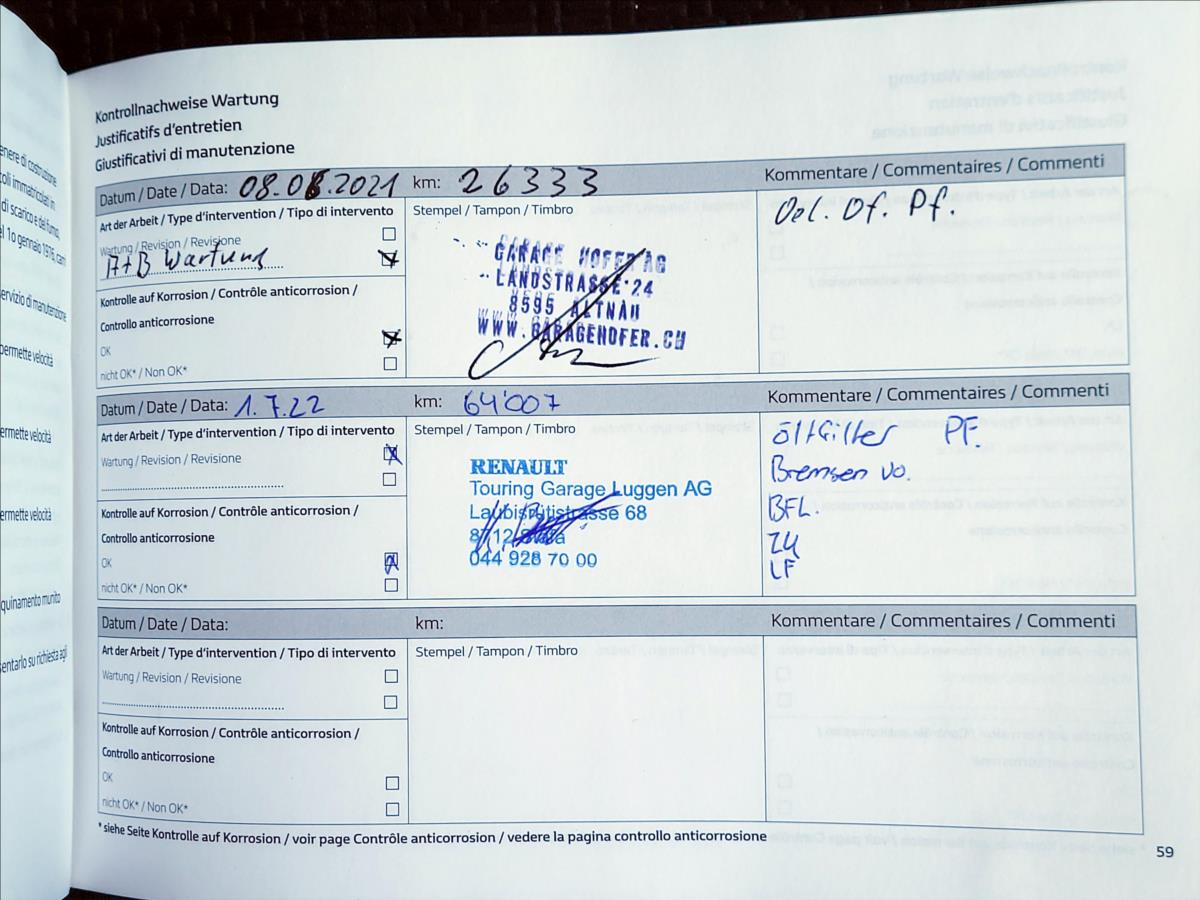 Kontrollnachweise Wartung
Justificatifs d'entretien
Giustificativi di manutenzione
Datum / Date / Data: 08.06.2021 km: 26333 Kommentare / Commentaires / Commenti
Art der Arbeit / Type d'intervention / Tipo di intervento
Wartung / Revision / Revisione
A+B Wartung
Kontrolle auf Korrosion / Contrôle anticorrosion /
Controllo anticorrosione
OK
nicht OK* / Non OK*
Stempel / Tampon / Timbro
GARAGE HOFER AG
LANDSTRASSE 24
8595 ALTNAU
WWW.GARAGEHOFER.CH
Oel. Of. Pf.
Datum / Date / Data: 1.7.22 km: 64'007 Kommentare / Commentaires / Commenti
Art der Arbeit / Type d'intervention / Tipo di intervento
Wartung / Revision / Revisione
Kontrolle auf Korrosion / Contrôle anticorrosion /
Controllo anticorrosione
OK
nicht OK* / Non OK*
Stempel / Tampon / Timbro
RENAULT
Touring Garage Luggen AG
Laubisrütistrasse 68
8712
044 928 70 00
Öl+Filter PF.
Bremsen vo.
BFL.
ZK
LF
Datum / Date / Data: km: Kommentare / Commentaires / Commenti
Art der Arbeit / Type d'intervention / Tipo di intervento
Wartung / Revision / Revisione
Kontrolle auf Korrosion / Contrôle anticorrosion /
Controllo anticorrosione
OK
nicht OK* / Non OK*
Stempel / Tampon / Timbro
* siehe Seite Kontrolle auf Korrosion / voir page Contrôle anticorrosion / vedere la pagina controllo anticorrosione
59